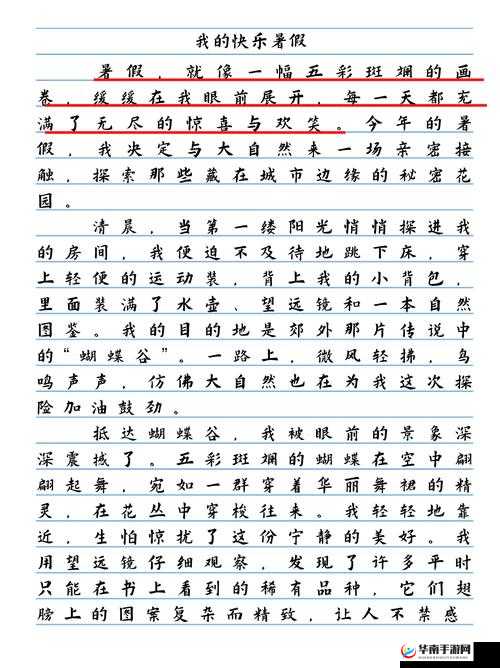 我的快乐暑假
暑假，就像一幅五彩斑斓的画
卷，缓缓在我眼前展开，每一天都充
满了无尽的惊喜与欢笑。今年的暑
假，我决定与大自然来一场亲密接
触，探索那些藏在城市边缘的秘密花
园。
清晨，当第一缕阳光悄悄探进我
的房间，我便迫不及待地跳下床，穿
上轻便的运动装，背上我的小背包，
里面装满了水壶、望远镜和一本自然
图鉴。我的目的地是郊外那片传说中
的“蝴蝶谷”。一路上，微风轻拂，鸟
鸣声声，仿佛大自然也在为我这次探
险加油鼓劲。
抵达蝴蝶谷，我被眼前的景象深
深震撼了。五彩斑斓的蝴蝶在空中翩
翩起舞，宛如一群穿着华丽舞裙的精
灵，在花丛中穿梭往来。我轻轻地靠
近，生怕惊扰了这份宁静的美好。我
用望远镜仔细观察，发现了许多平时
只能在书上看到的稀有品种，它们翅
膀上的图案复杂而精致，让人不禁感
华南手游网